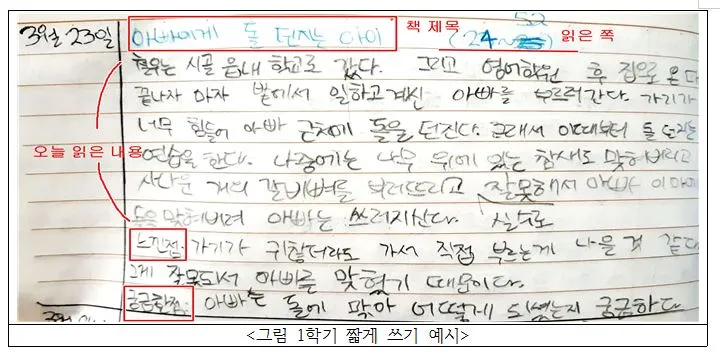 3월 23일 아빠에게 돌 던지는 아이 책 제목 (24~52) 읽은 쪽
현우는 시골 읍내 학교로 갔다. 그리고 영어학원 후 집으로 온다
끝나자 마자 밭에서 일하고계신 아빠를 부르러간다. 가기가
너무 힘들어 아빠 근처에 돌을 던진다. 그래서 이때부터 돌 던지는
오늘 읽은 내용 연습을 한다. 나중에는 나무 위에 있는 참새도 맞혀버리고
사나운 개의 갈비뼈를 부러뜨리고 잘못해서 아빠 이마에
돌을 맞혀버려 아빠는 쓰러지신다. 실수로
느낀점: 가기가 귀찮더라도 가서 직접 부르는게 나을 것 같다
그게 잘못되서 아빠를 맞혔기 때문이다.
궁금한점: 아빠는 돌에 맞아 어떻게 되셨는지 궁금하다
<그림 1학기 짧게 쓰기 예시>